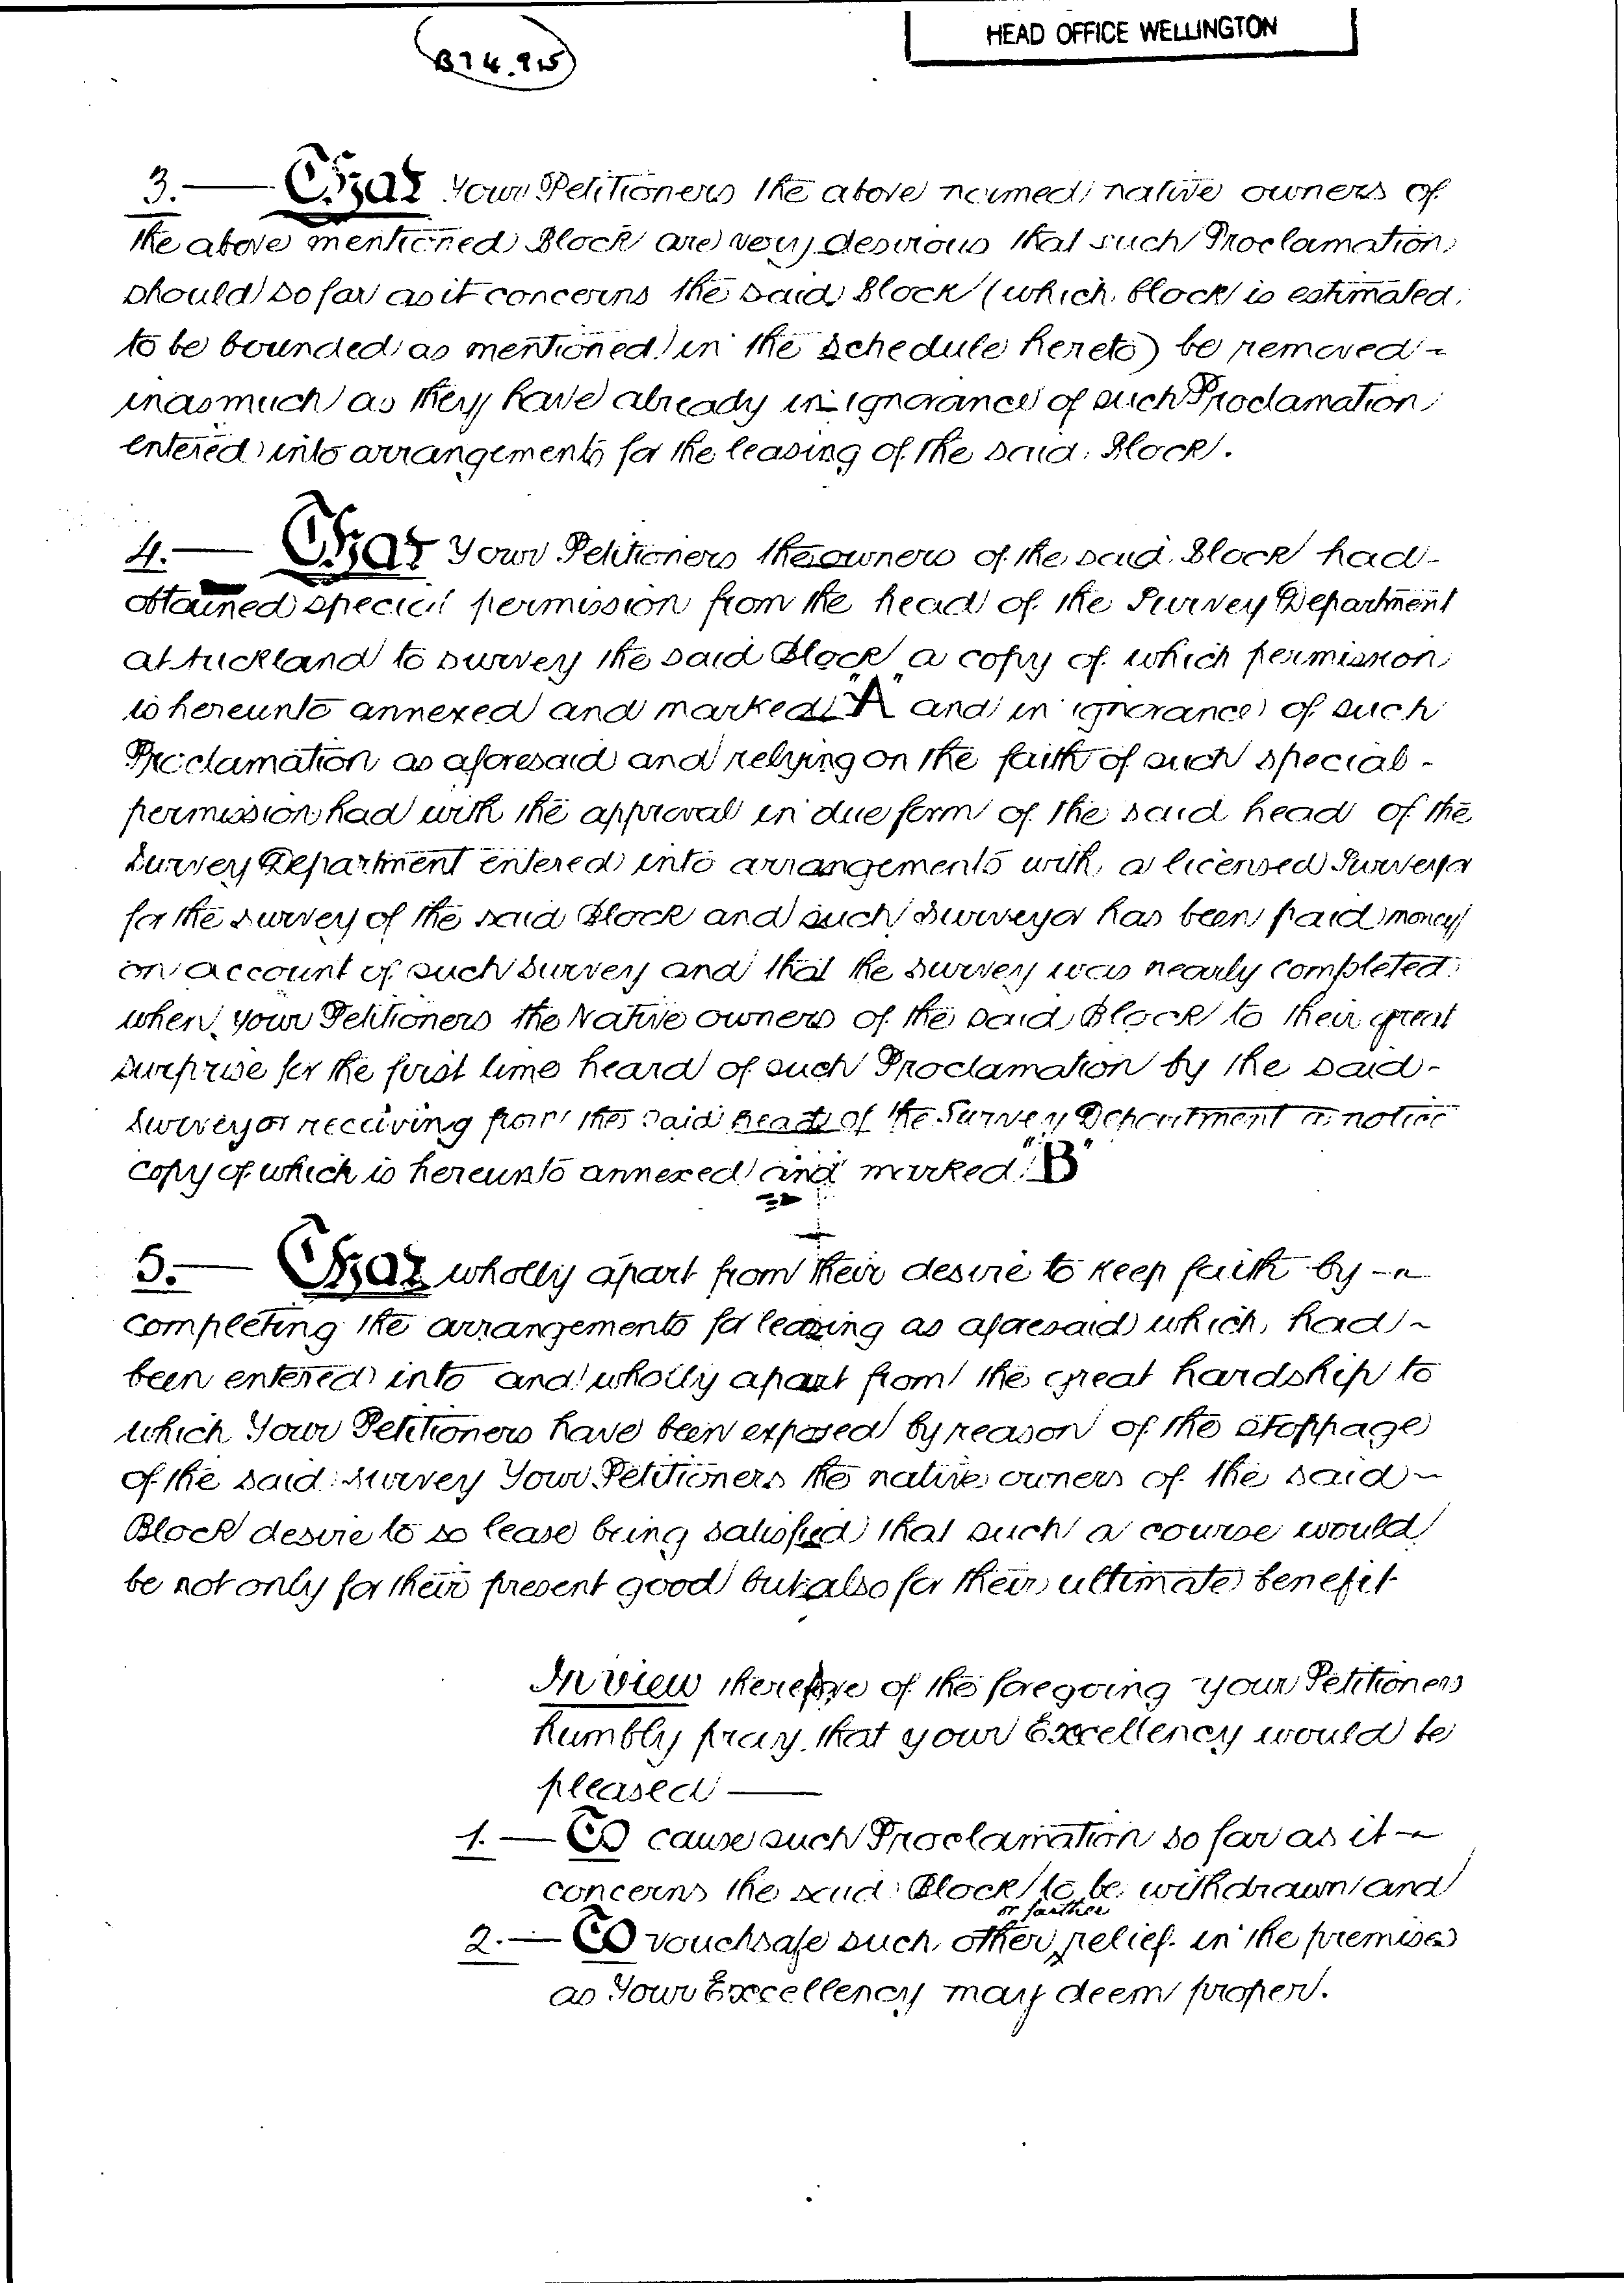 B74.915
HEAD OFFICE WELLINGTON
3.— That Your Petitioners the above named native owners of
the above mentioned Block are very desirous that such Proclamation
should so far as it concerns the said Block (which block is estimated
to be bounded as mentioned in the Schedule hereto) be removed -
inasmuch as they have already in ignorance of such Proclamation
entered into arrangements for the leasing of the said Block.
4.— That Your Petitioners the owners of the said Block had -
obtained special permission from the head of the Survey Department
at Auckland to survey the said Block a copy of which permission
is hereunto annexed and marked "A" and in ignorance of such
Proclamation as aforesaid and relying on the faith of such special -
permission had with the approval in due form of the said head of the
Survey Department entered into arrangements with a licensed Surveyor
for the survey of the said Block and such Surveyor has been paid money
on account of such survey and that the survey was nearly completed
when your Petitioners the Native owners of the said Block to their great
surprise for the first time heard of such Proclamation by the said -
Surveyor receiving from the said head of the Survey Department a notice
copy of which is hereunto annexed and marked "B"
5.— That wholly apart from their desire to keep faith by -
completing the arrangements for leasing as aforesaid which had -
been entered into and wholly apart from the great hardship to
which Your Petitioners have been exposed by reason of the stoppage
of the said survey Your Petitioners the native owners of the said -
Block desire to so lease being satisfied that such a course would
be not only for their present good but also for their ultimate benefit
In view therefore of the foregoing your Petitioners
humbly pray that your Excellency would be
pleased —
1.— To cause such Proclamation so far as it -
concerns the said Block to be withdrawn and
or further
2.— To vouchsafe such other relief in the premises
as Your Excellency may deem proper.